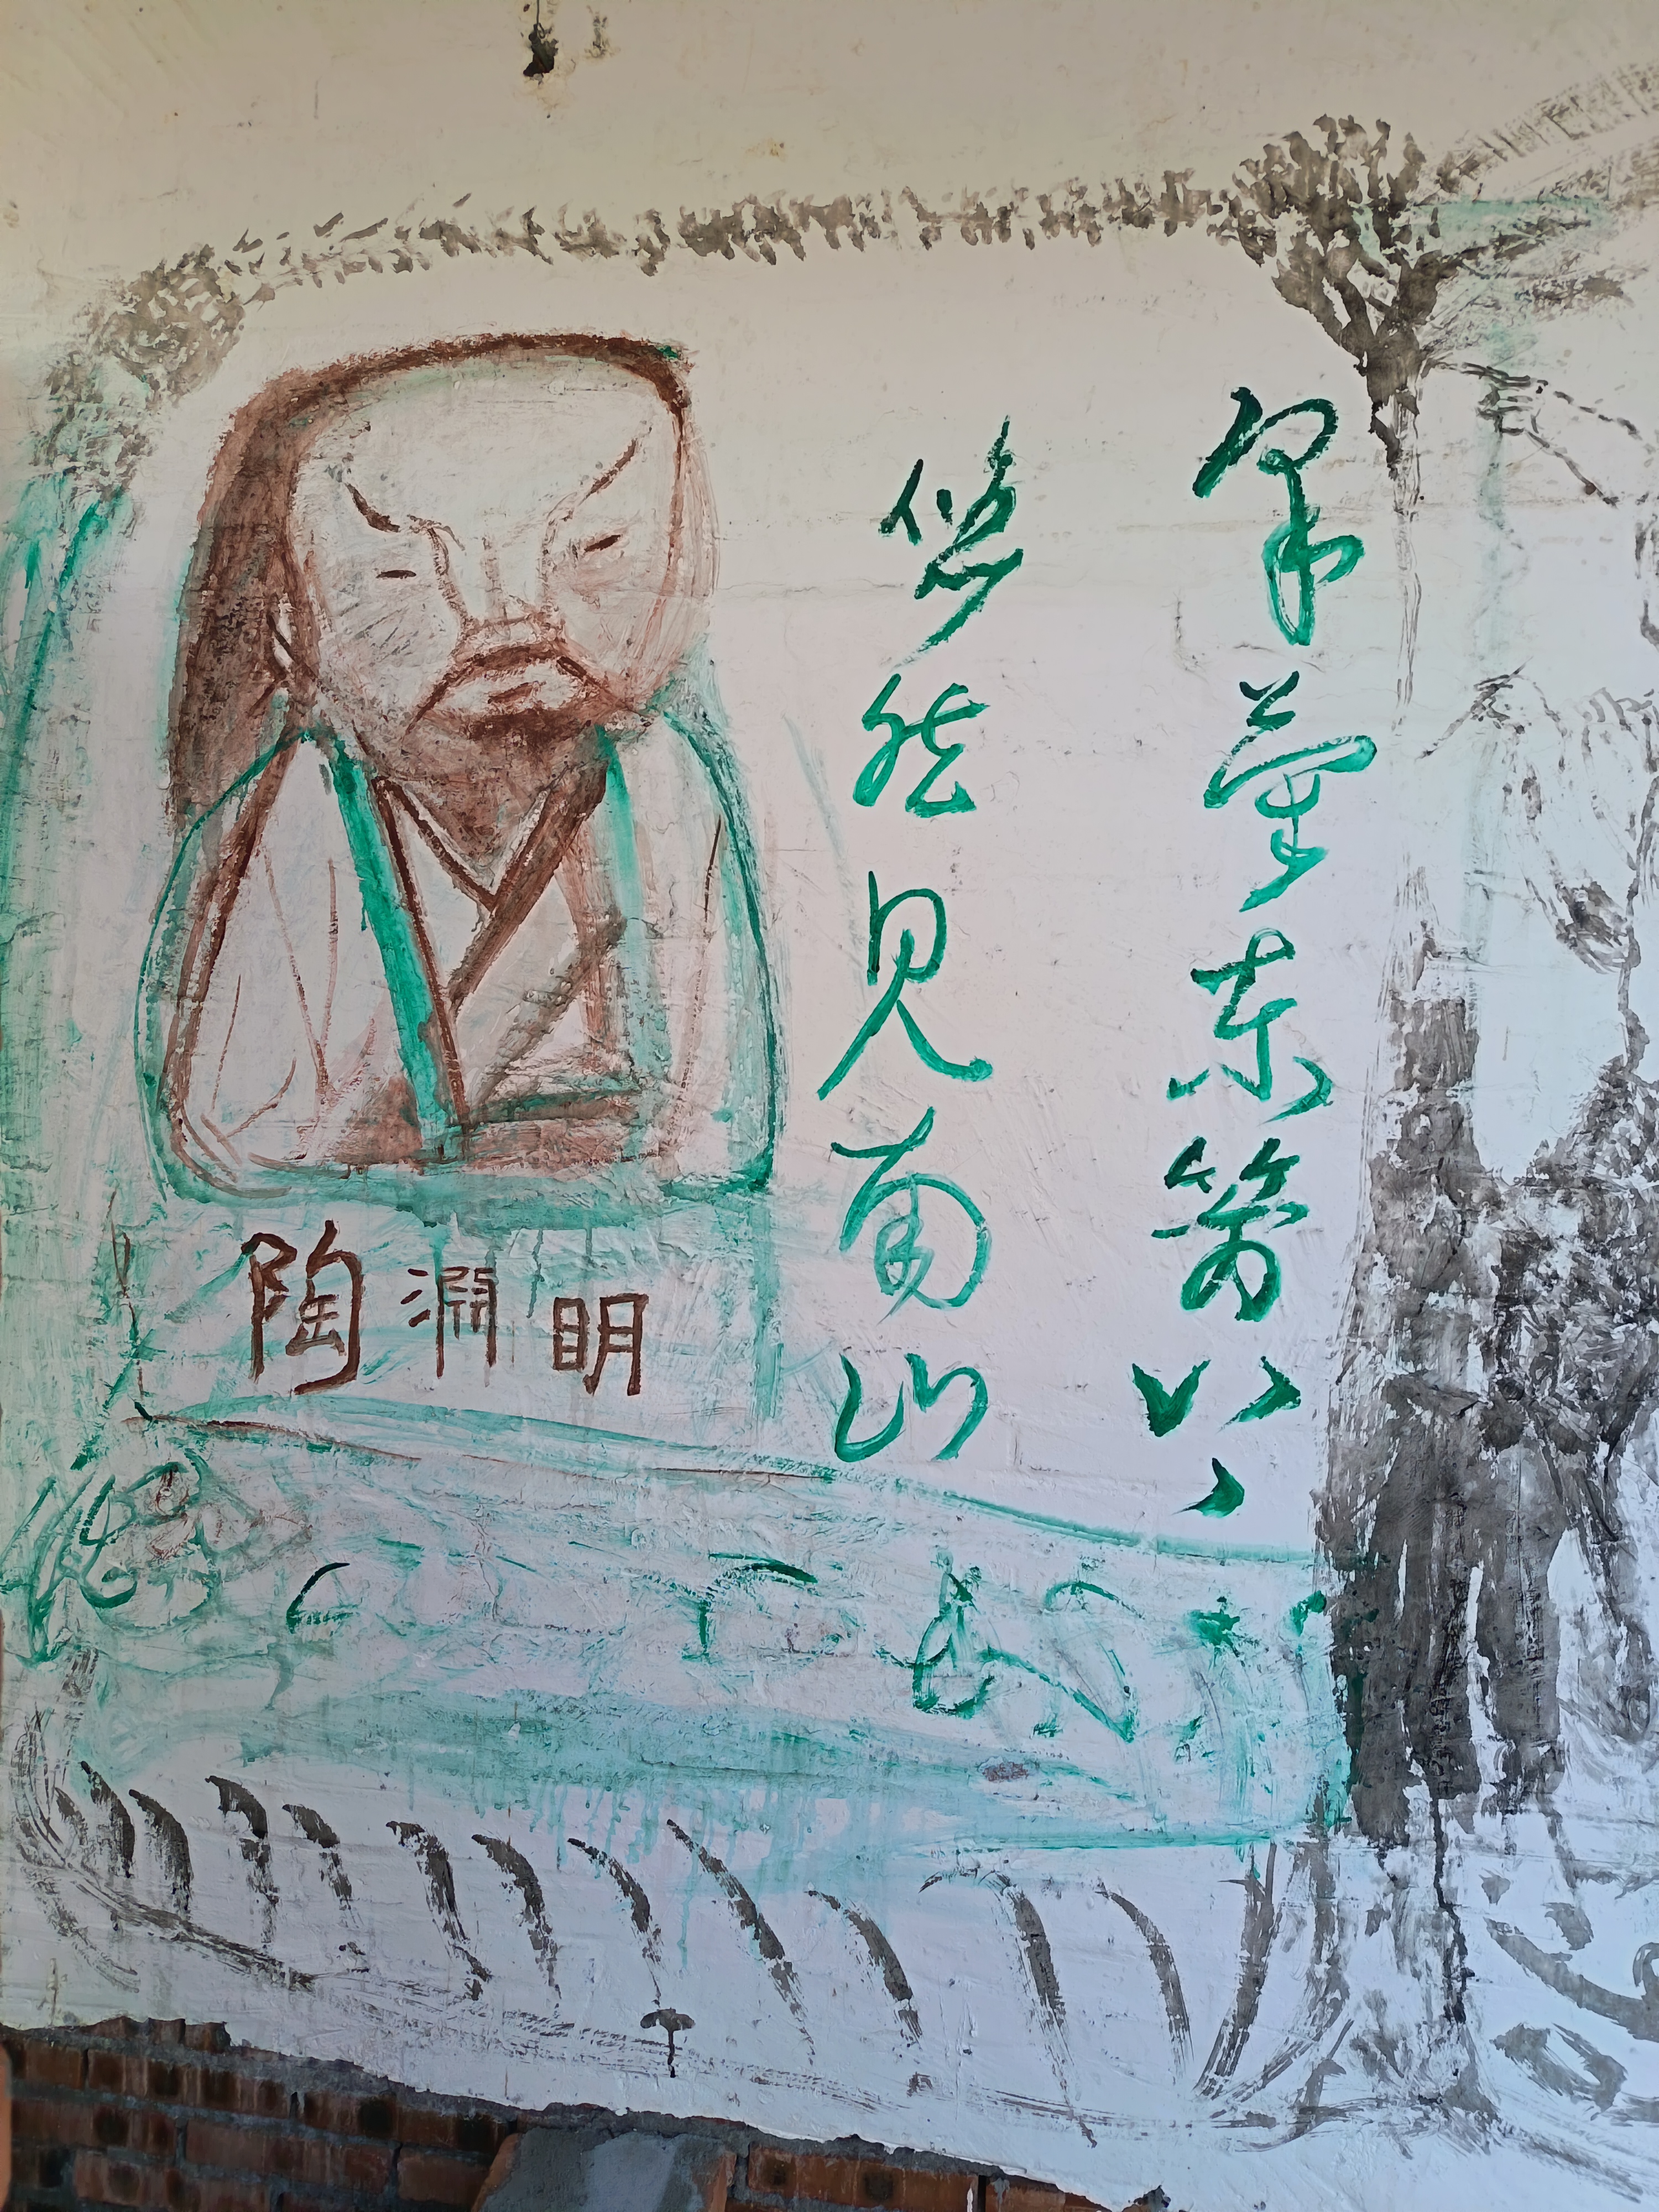 采菊东篱下
悠然见南山
陶淵明